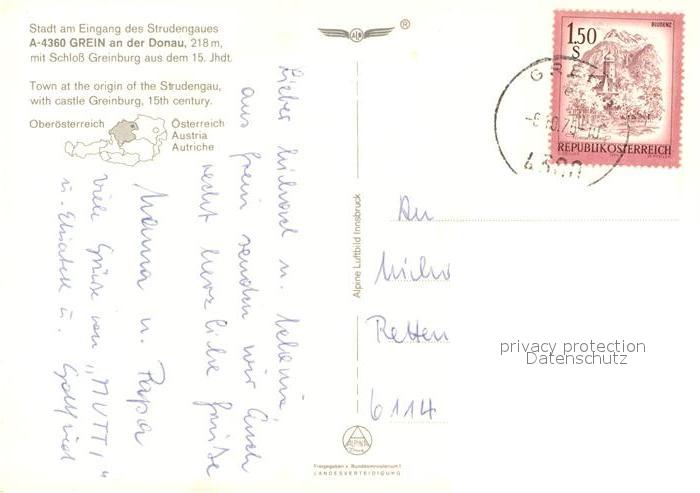 Stadt am Eingang des Strudengaues
A-4360 GREIN an der Donau, 218 m,
mit Schloß Greinburg aus dem 15. Jhdt.
Town at the origin of the Strudengau,
with castle Greinburg, 15th century.
Oberösterreich
Österreich
Austria
Autriche
Lieber Michael u. Melanie
aus Grein senden wir Euch
recht herzliche Grüße
Mama u. Papa
viele Grüße von "MUTTI"
u. Elisabeth u. Gottfried
®
Alpine Luftbild Innsbruck
ALPINE
Freigegeben v. Bundesministerium f.
LANDESVERTEIDIGUNG
BLUDENZ
1.50
S
REPUBLIK ÖSTERREICH
GREI
An
Retten
6114
privacy protection
Datenschutz